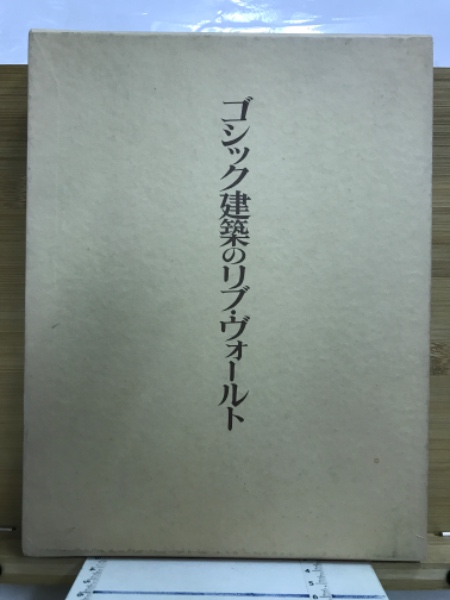 ゴシック建築のリブ・ヴォールト